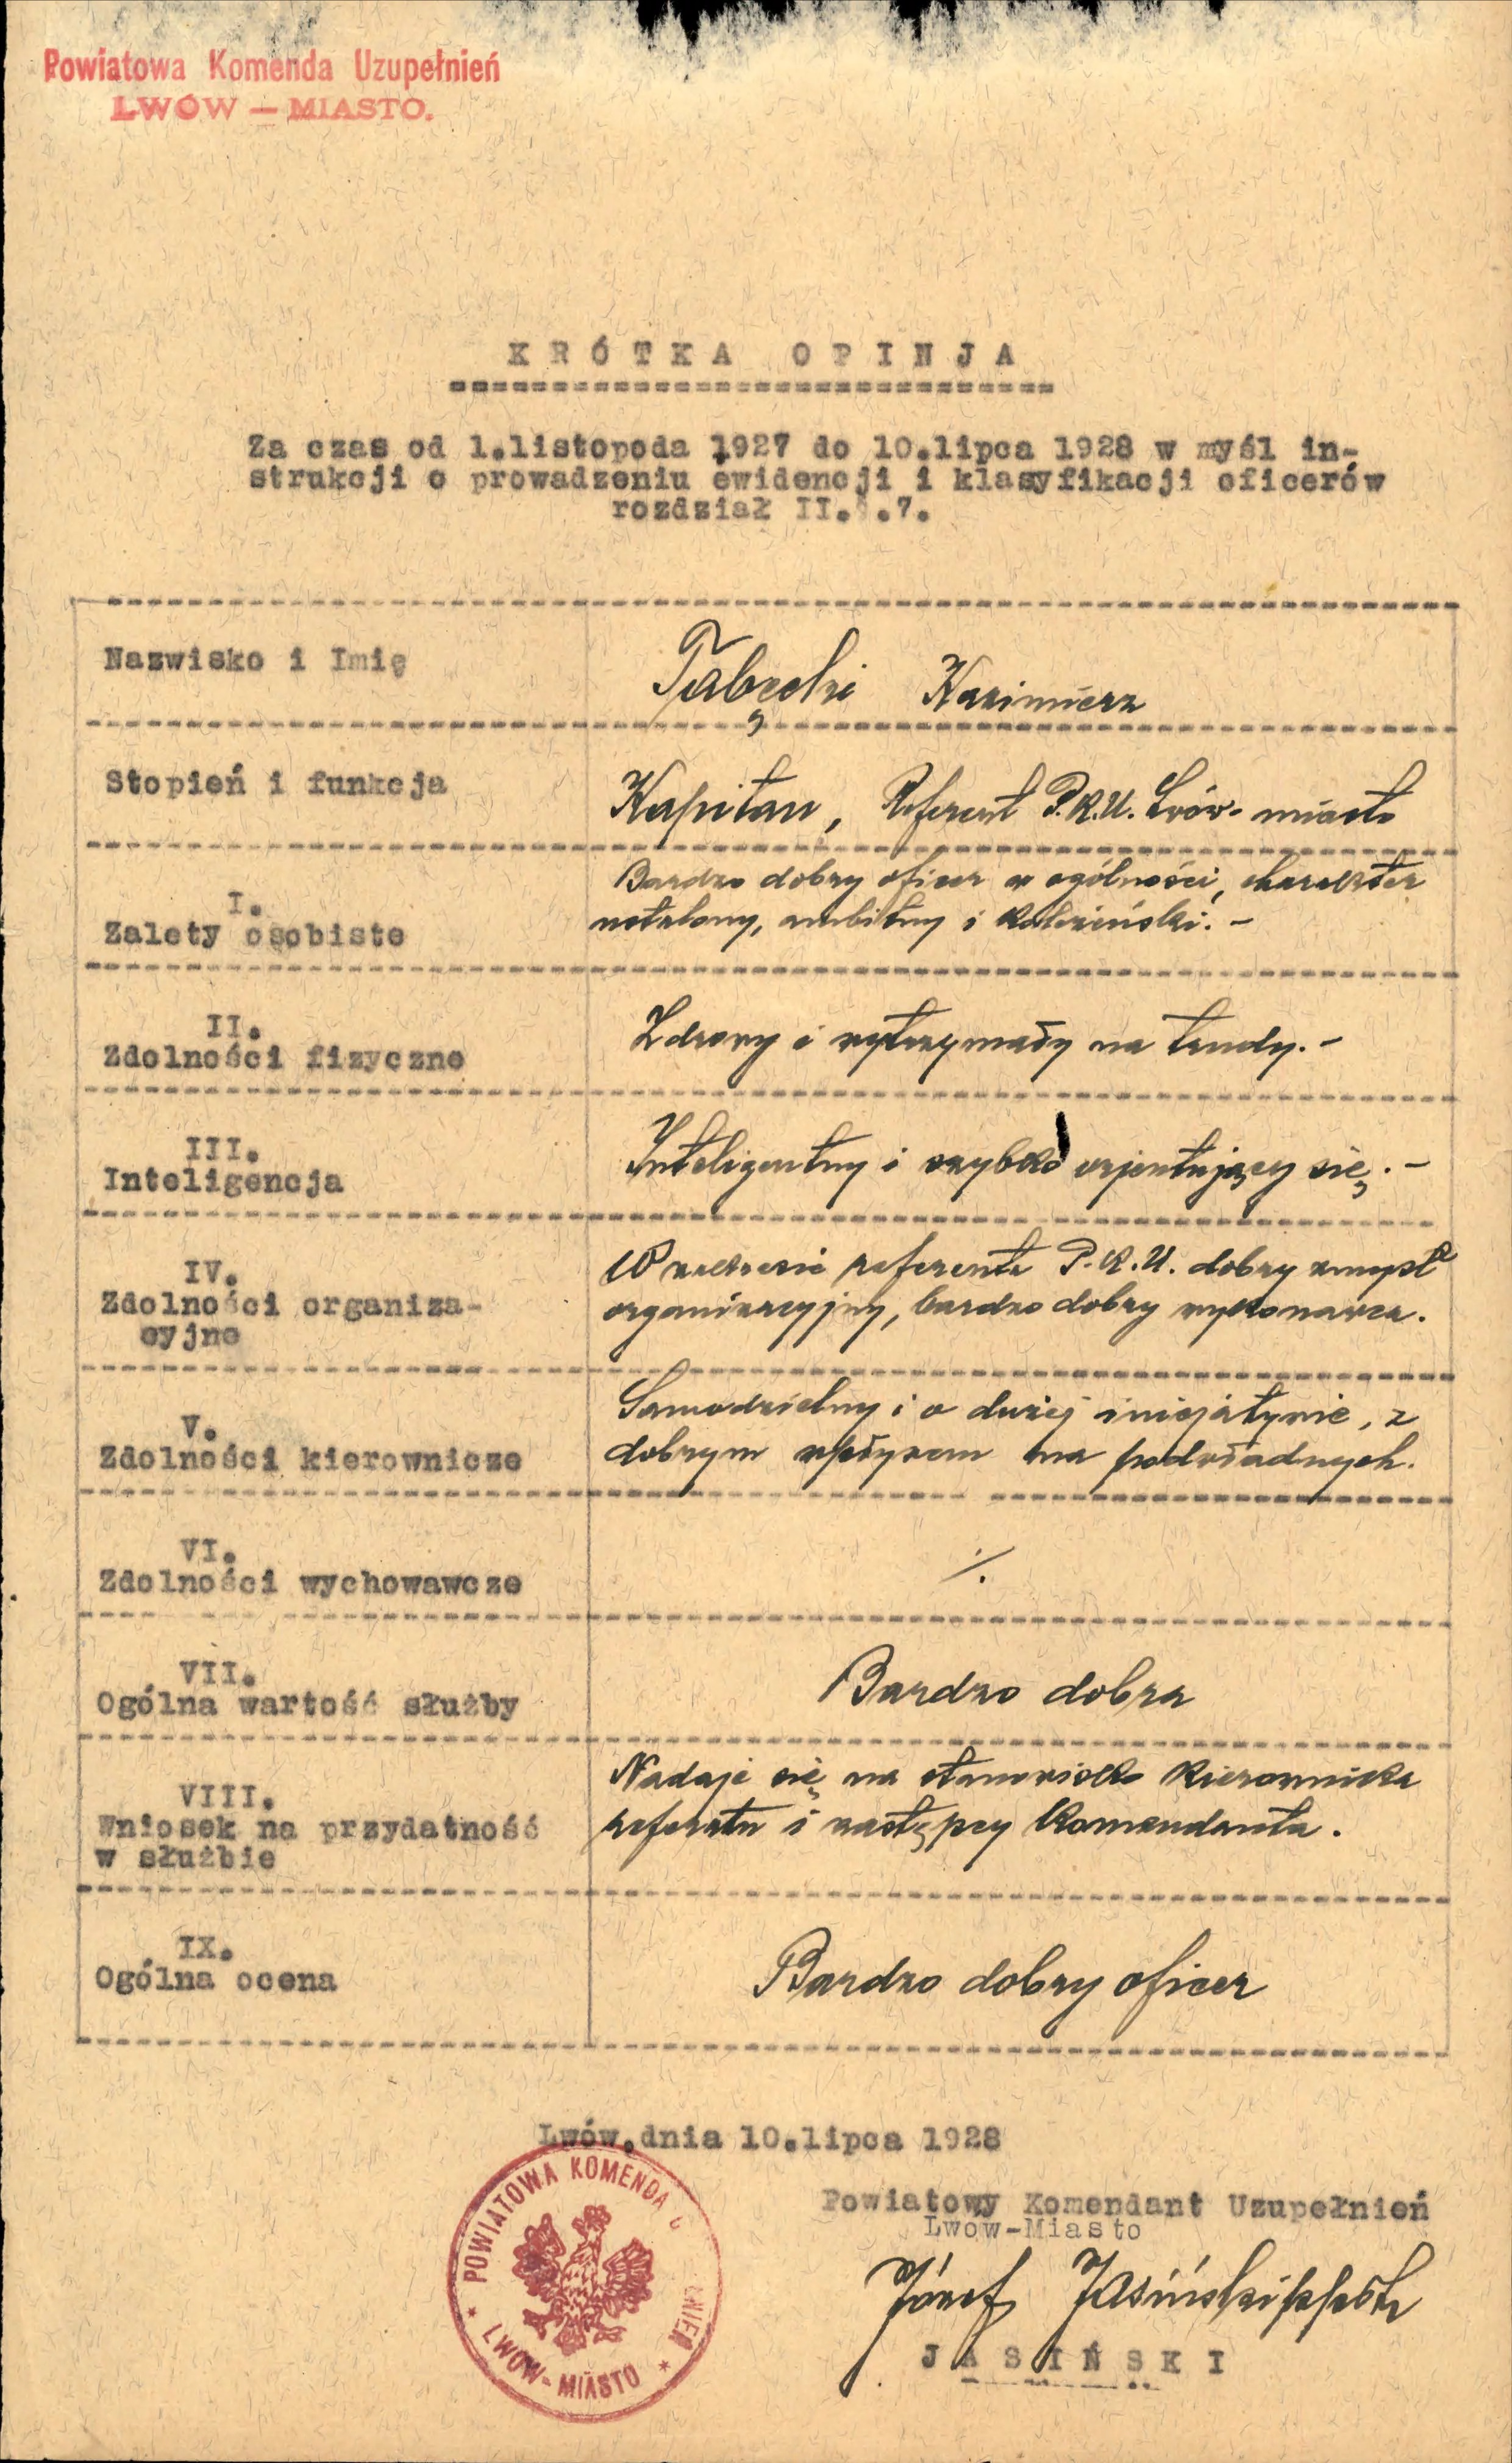 Powiatowa Komenda Uzupełnień
LWÓW — MIASTO.
KRÓTKA OPINJA
Za czas od 1.listopoda 1927 do 10.lipca 1928 w myśl in-
strukcji o prowadzeniu ewidencji i klasyfikacji oficerów
rozdział II. .7.
Nazwisko i Imię
Tabęcki Kazimierz
Stopień i funkcja
Kapitan, Referent P.K.U. Lwów-miasto
I.
Zalety osobiste
Bardzo dobry oficer w ogólności, charakter
ustalony, ambitny i koleżeński. –
II.
Zdolności fizyczne
Zdrowy i wytrzymały na trudy. –
III.
Inteligencja
Inteligentny i szybko orjentujący się. –
IV.
Zdolności organiza-
cyjne
W zakresie referenta P.K.U. dobry zmysł
organizacyjny, bardzo dobry wykonawca.
V.
Zdolności kierownicze
Samodzielny i o dużej inicjatywie, z
dobrym wpływem na podwładnych.
VI.
Zdolności wychowawcze
./.
VII.
Ogólna wartość służby
Bardzo dobra
VIII.
Wniosek na przydatność
w służbie
Nadaje się na stanowisko kierownika
referatu i zastępcy Komendanta.
IX.
Ogólna ocena
Bardzo dobry oficer
Lwów,dnia 10.lipca 1928
Powiatowy Komendant Uzupełnień
Lwów-Miasto
Józef Jasiński ppłk
JASIŃSKI
POWIATOWA KOMENDA U NIEŃ
* LWÓW-MIASTO *